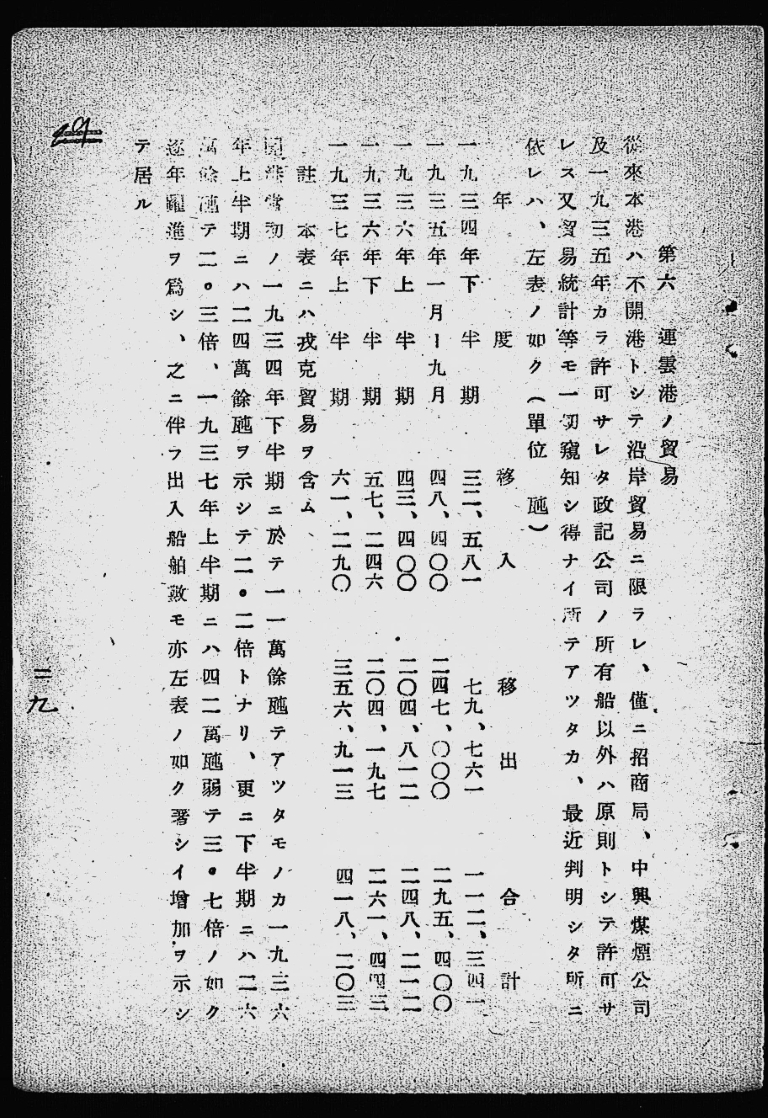 第六 連雲港ノ貿易
從來本港ハ不開港トシテ沿岸貿易ニ限ラレ、僅ニ招商局、中興煤煙公司
及一九三五年カラ許可サレタ政記公司ノ所有船以外ハ原則トシテ許可サ
レス又貿易統計等モ一切窺知シ得ナイ所テアツタカ、最近判明シタ所ニ
依レハ、左表ノ如ク(單位 瓲)
年度 移入 移出 合計
一九三四年下半期 三二、五八一 七九、七六一 一一二、三四一
一九三五年一月ー九月 四八、四〇〇 二四七、〇〇〇 二九五、四〇〇
一九三六年上半期 四三、四〇〇 二〇四、八一二 二四八、二一二
一九三六年下半期 五七、二四六 二〇四、一九七 二六一、四四三
一九三七年上半期 六一、二九〇 三五六、九一三 四一八、二〇三
註 本表ニハ戎克貿易ヲ含ム
開港當初ノ一九三四年下半期ニ於テ一一萬餘瓲テアツタモノカ一九三六
年上半期ニハ二四萬餘瓲ヲ示シテ二・二倍トナリ、更ニ下半期ニハ二六
萬餘瓲テ二・三倍、一九三七年上半期ニハ四二萬瓲弱テ三・七倍ノ如ク
逐年躍進ヲ爲シ、之ニ伴フ出入船舶數モ亦左表ノ如ク著シイ增加ヲ示シ
テ居ル
二九